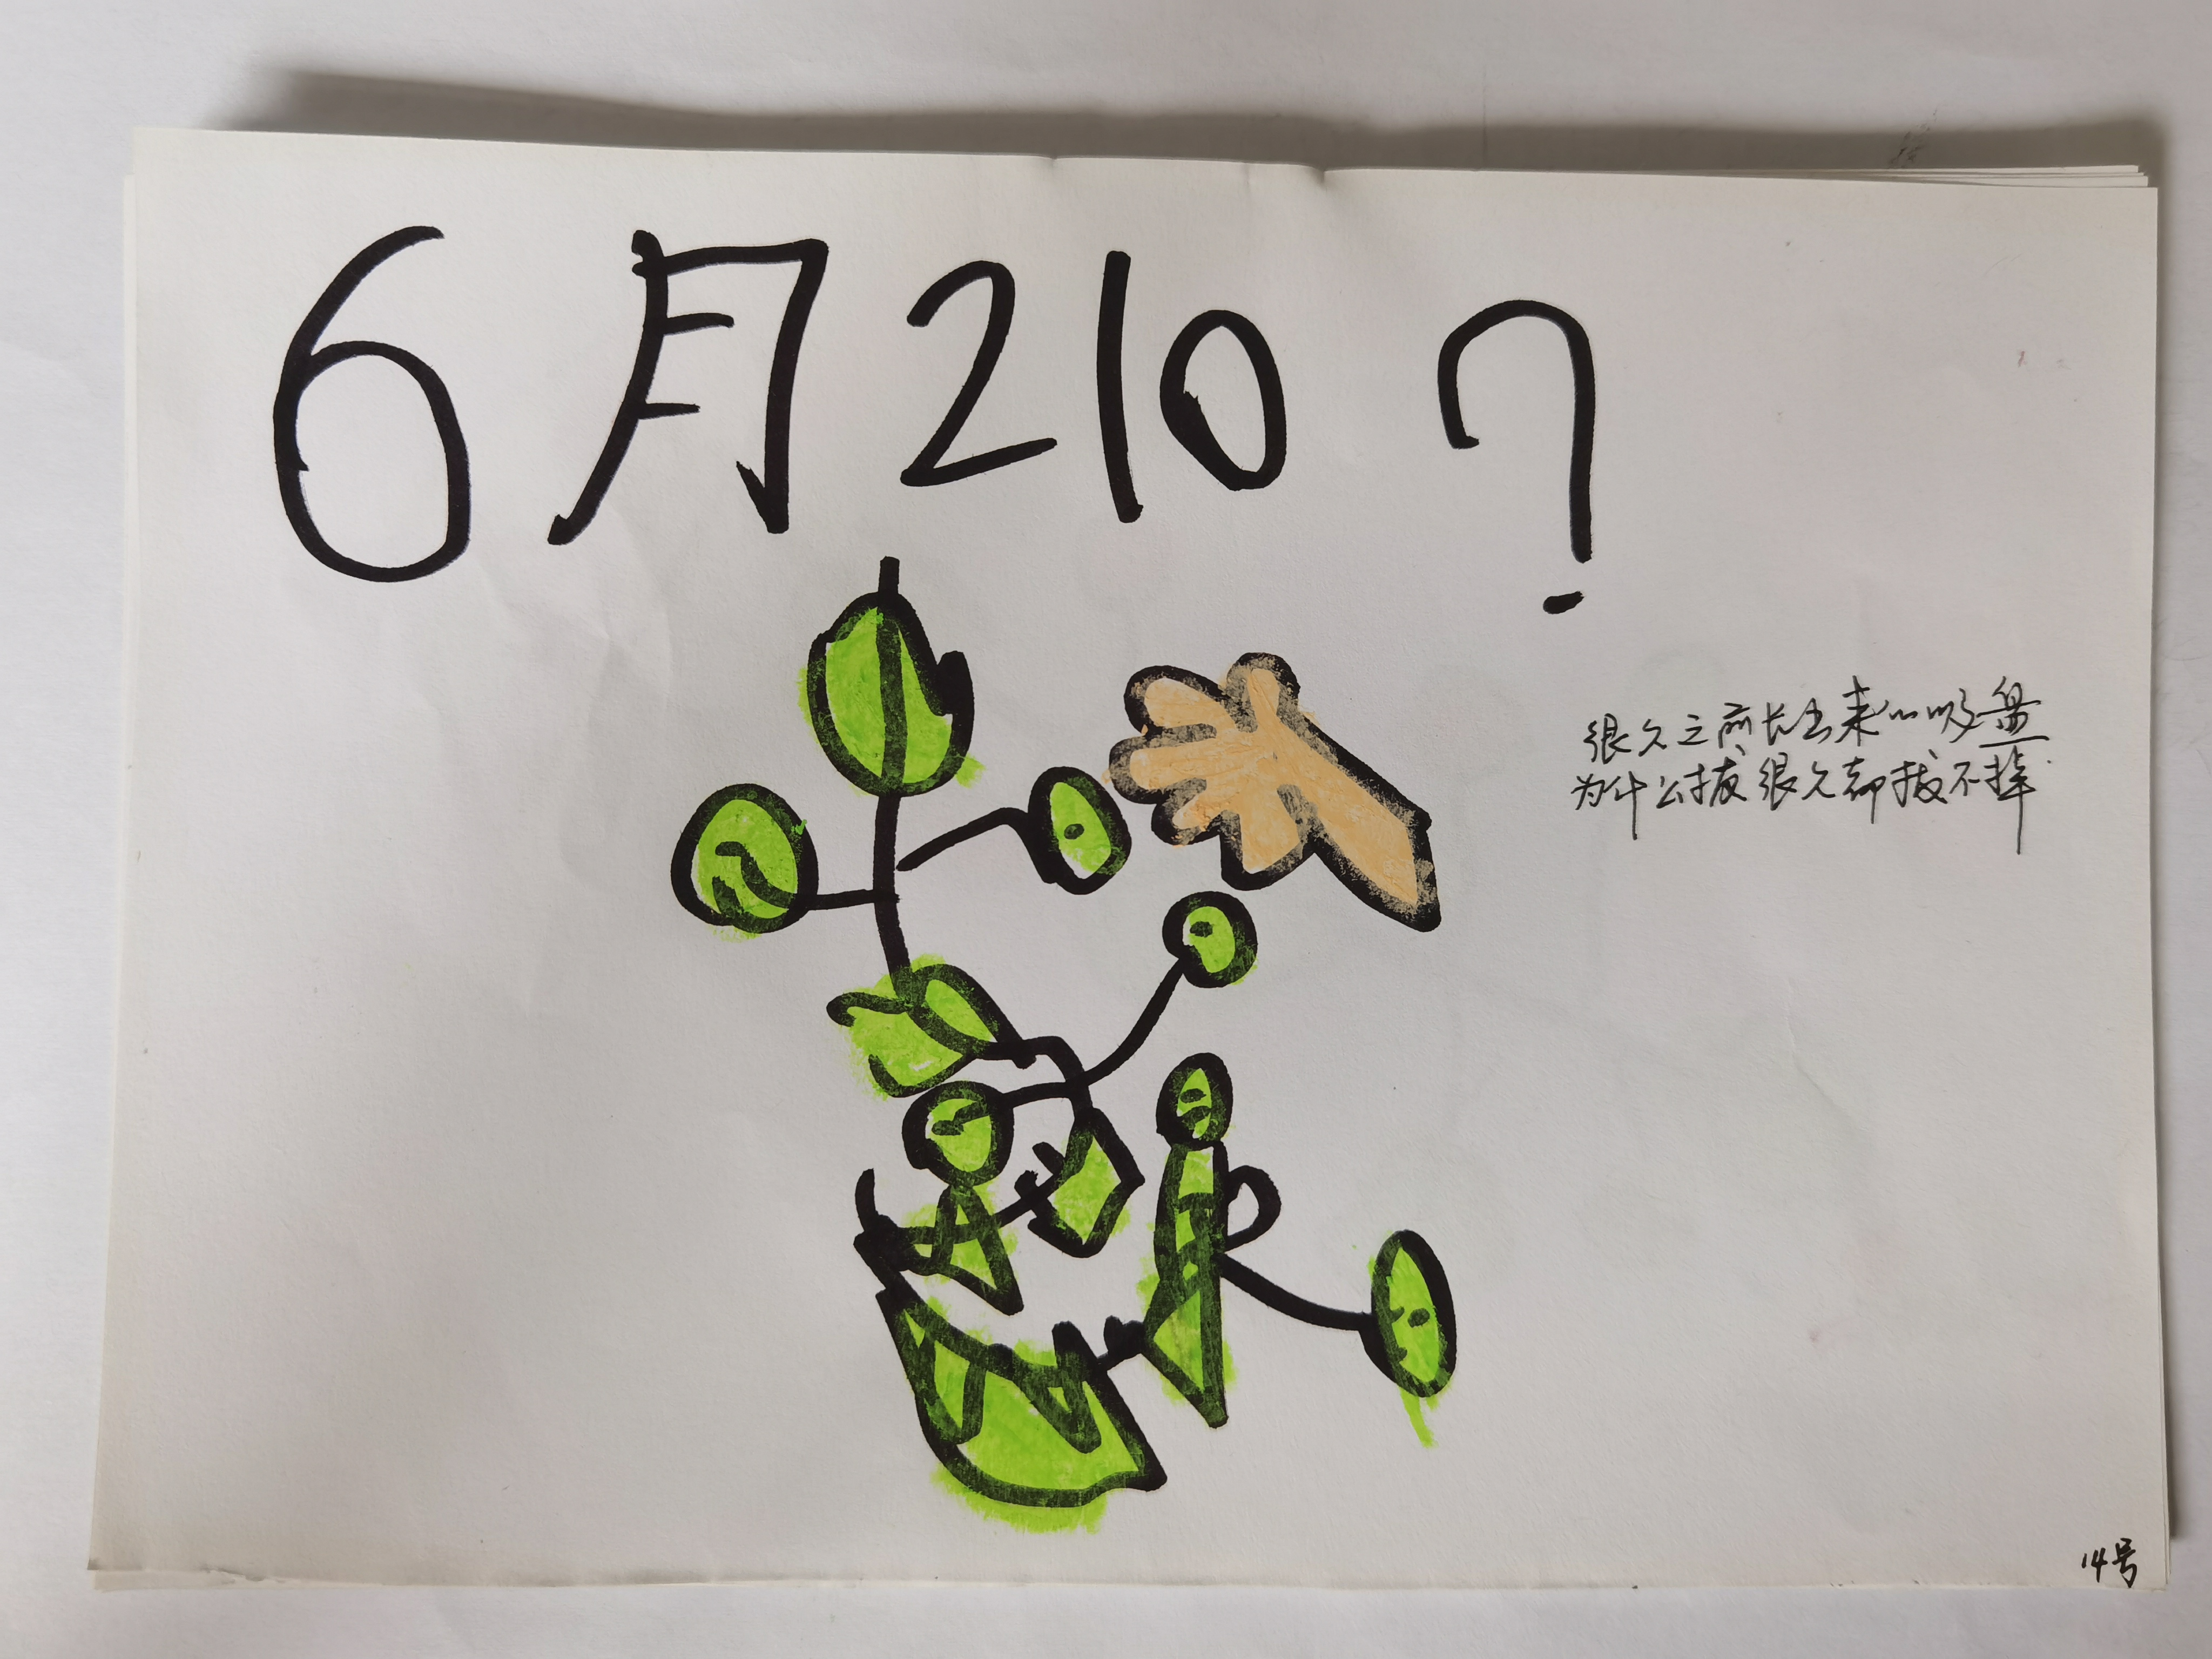 6月210？
很久之前长出来的吸盘
为什么拔很久都拔不掉
14号